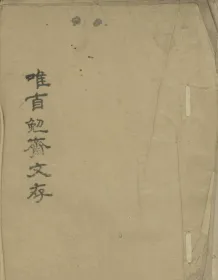 唯自勉齋文存